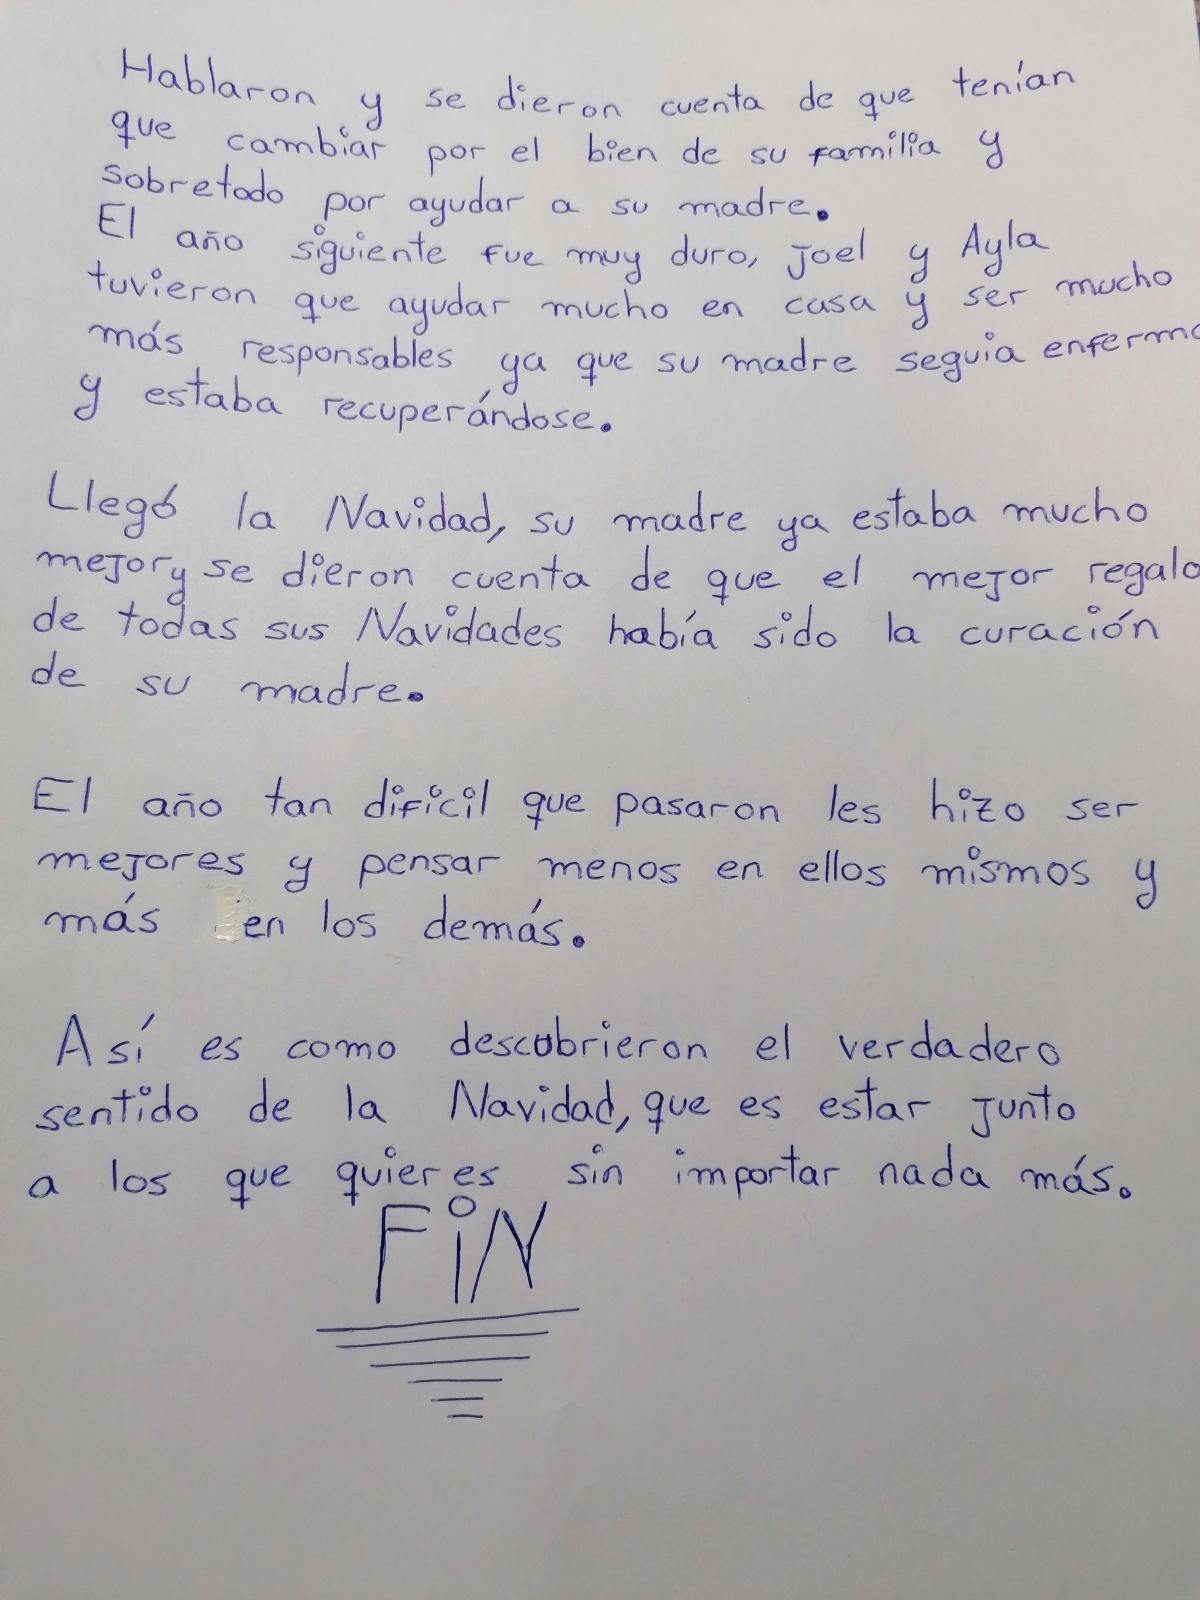 Hablaron y se dieron cuenta de que tenían
que cambiar por el bien de su familia y
sobretodo por ayudar a su madre.
El año siguiente fue muy duro, Joel y Ayla
tuvieron que ayudar mucho en casa y ser mucho
más responsables ya que su madre seguia enferma
y estaba recuperándose.
Llegó la Navidad, su madre ya estaba mucho
mejor y se dieron cuenta de que el mejor regalo
de todas sus Navidades había sido la curación
de su madre.
El año tan dificil que pasaron les hizo ser
mejores y pensar menos en ellos mismos y
más en los demás.
Así es como descubrieron el verdadero
sentido de la Navidad, que es estar junto
a los que quieres sin importar nada más.
FiN